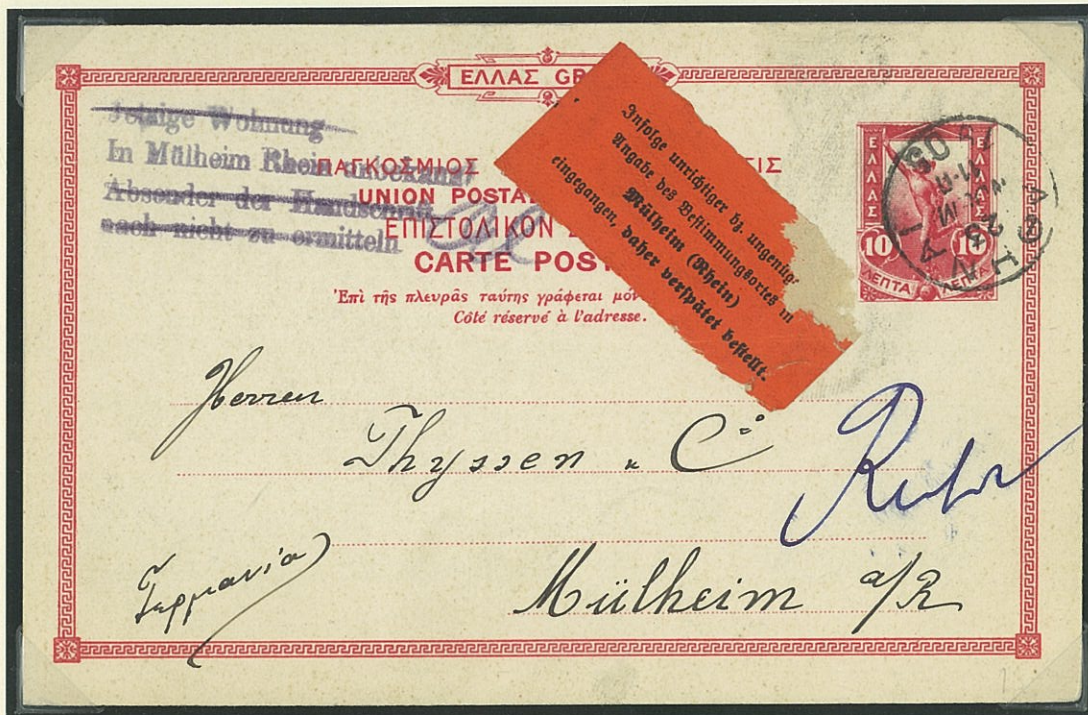 ΕΛΛΑΣ GR
Jetzige Wohnung
In Mülheim Rhein unbekannt
Absender der Handschrift
nach nicht zu ermitteln
ΠΑΓΚΟΣΜΙΟΣ
UNION POSTA
ΕΠΙΣΤΟΛΙΚΟΝ
CARTE POST
Ἐπὶ τῆς πλευρᾶς ταύτης γράφεται μόν
Côté réservé à l'adresse.
Infolge unrichtiger bz. ungenüge
Angabe des Bestimmungsortes in
eingegangen, daher verspätet bestellt.
Mülheim (Rhein)
ΕΛΛΑΣ
ΕΛΛΑΣ
10
10
ΛΕΠΤΑ
ΛΕΠΤΑ
ΑΘΗΝΑΙ
Herren
Thyssen u Co
Ruhr
Γερμανία
Mülheim a/R